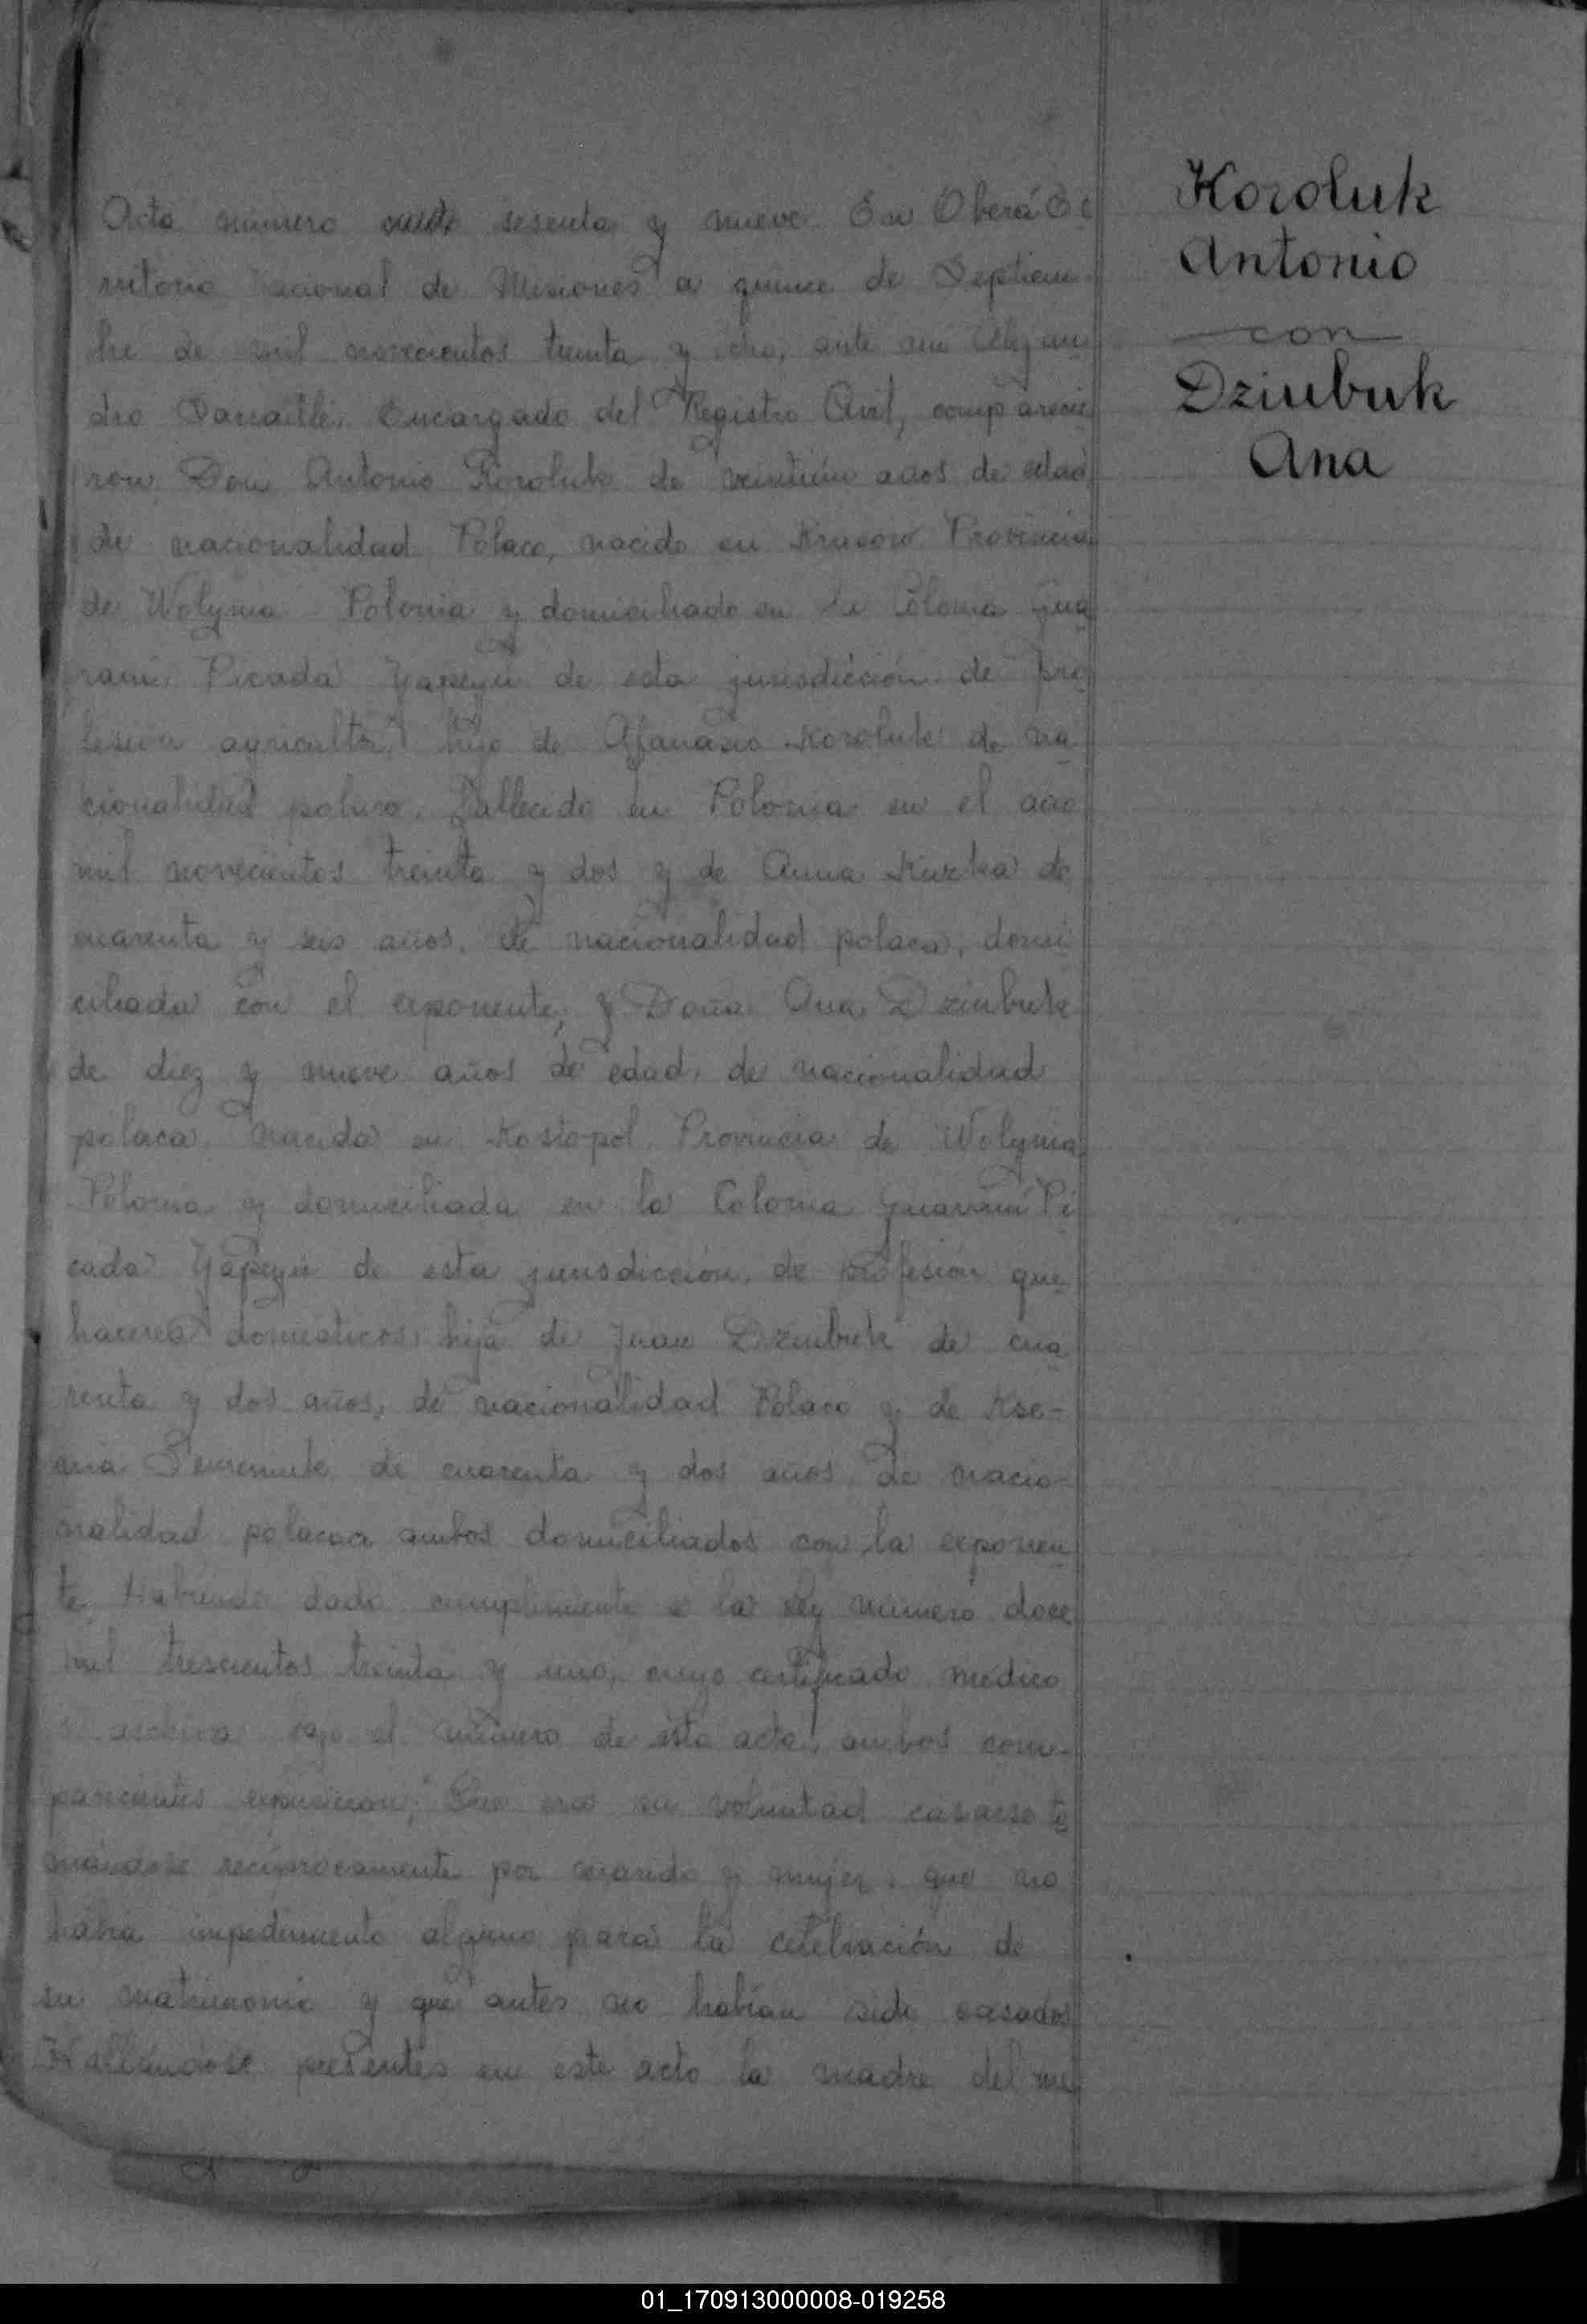 Acta número sesenta y nueve. En Oberá Te
rritorio Nacional de Misiones a quince de Septiem-
bre de mil novecientos treinta y ocho, ante mi Alejan
dro Encargado del Registro Civil, comparecie
ron Don Antonio Koroluk de veintiún años de edad
de nacionalidad Polaco, nacido en Provincia
de Wolynia Polonia y domiciliado en la Colonia Gua
raní Picada Yapeyú de esta jurisdicción de pro
fesión agricultor, hijo de Afanasio Koroluk de na
cionalidad polaco, fallecido en Polonia en el año
mil novecientos treinta y dos y de Anna de
cuarenta y seis años, de nacionalidad polaca, domi
ciliada con el exponente, y Doña Ana Dziubuk
de diez y nueve años de edad, de nacionalidad
polaca, nacida en Kostopol Provincia de Wolynia
Polonia y domiciliada en la Colonia Guaraní Pi
cada Yapeyú de esta jurisdicción, de profesión que
haceres domesticos, hija de Juan Dziubuk de cua
renta y dos años, de nacionalidad Polaco y de Kse-
nia de cuarenta y dos años de nacio-
nalidad polacaa ambos domiciliados con la exponen
te. Habiendo dado cumplimiento a la ley número doce
mil trescientos treinta y uno, cuyo certificado médico
se archiva bajo el número de esta acta, ambos com-
parecientes expusieron; Que era su voluntad casarse to
mándose recíprocamente por marido y mujer, que no
había impedimento alguno para la celebración de
su matrimonio y que antes no habían sido casados
Hallándose presentes en este acto la madre del me
Koroluk
Antonio
con
Dziubuk
Ana
01_170913000008-019258